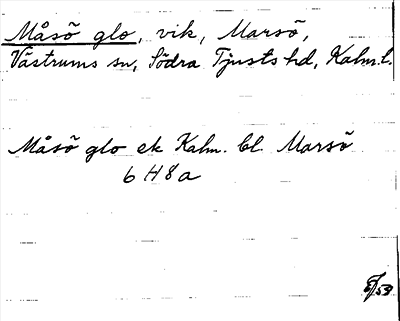 Måsö glo, vik, Marsö,
Västrums sn, Södra Tjusts hd, Kalm. l.
Måsö glo ek Kalm. bl. Marsö
6 H 8 a